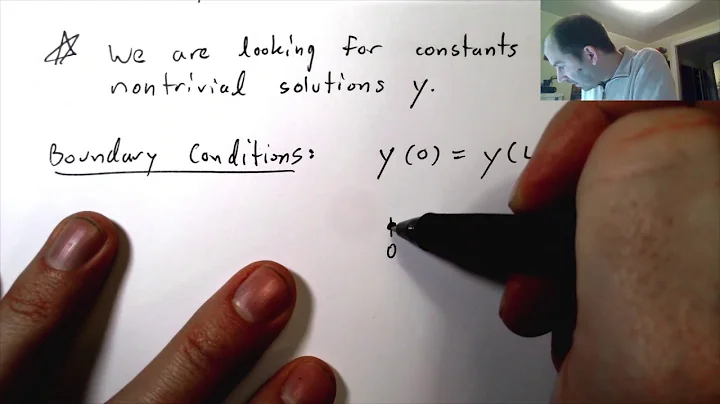 ☆ We are looking for constants
nontrivial solutions y.
Boundary Conditions: y(0) = y(L
0